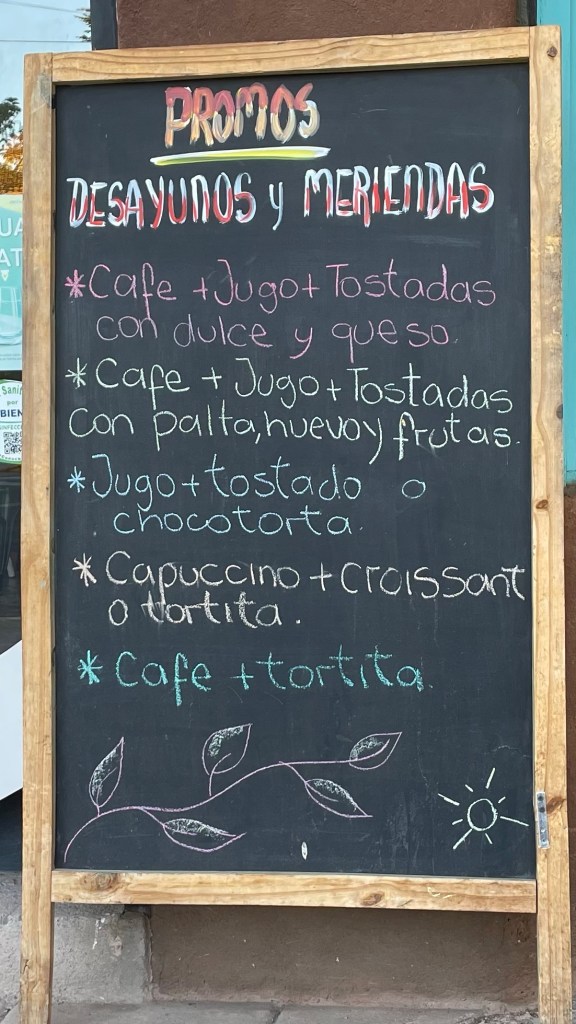 PROMOS
DESAYUNOS y MERIENDAS
*Cafe + Jugo + Tostadas
con dulce y queso.
*Cafe + Jugo + Tostadas
con palta, huevo y frutas.
*Jugo + tostado o
chocotorta.
*Capuccino + croissant
o tortita.
*Cafe + tortita.
UA
AT
Sani
por
BIEN